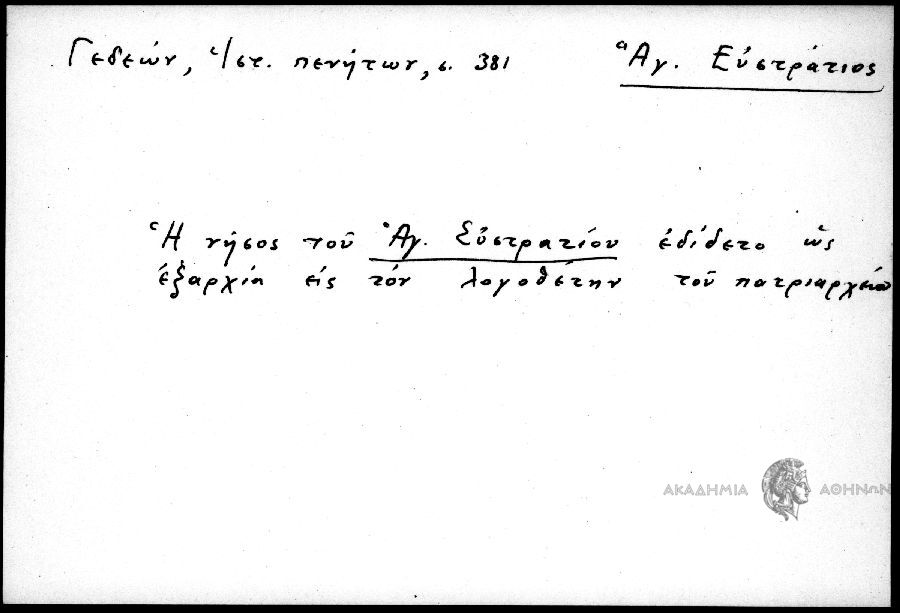 Γεδεών, Ἱστ. πενήτων, σ. 381
Ἅγ. Εὐστράτιος
Ἡ νῆσος τοῦ Ἁγ. Εὐστρατίου ἐδίδετο ὡς
ἐξαρχία εἰς τόν λογοθέτην τοῦ πατριαρχείου
ΑΚΑΔΗΜΙΑ ΑΘΗΝΩΝ